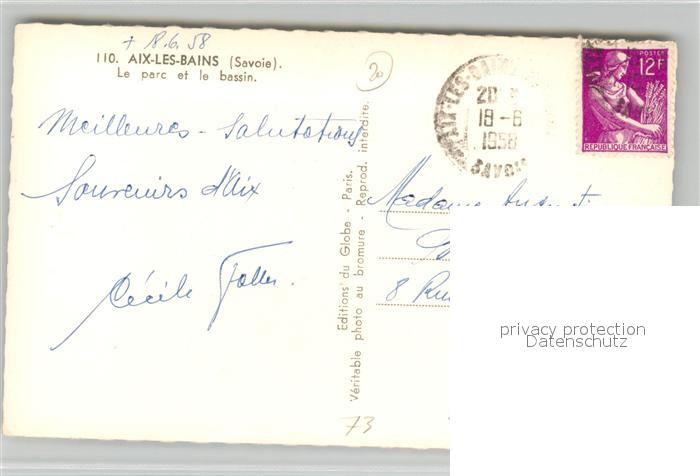 + 18.6.58
110. AIX-LES-BAINS (Savoie).
Le parc et le bassin.
20
AIX-LES-BAINS
20
18-6
1958
SAVOIE
POSTES
12F
REPUBLIQUE FRANCAISE
Meilleures - Salutations
Souvenirs d'Aix
Cécile
Editions du Globe - Paris.
Véritable photo au bromure - Reprod. interdite.
Madame
8 Rue
73
privacy protection
Datenschutz